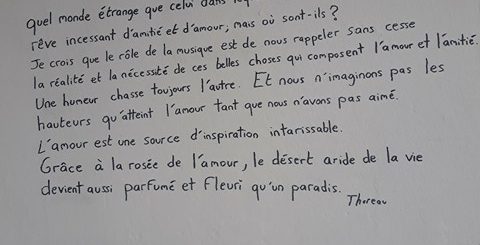 quel monde étrange que celui dans
rêve incessant d'amitié et d'amour, mais où sont-ils ?
Je crois que le rôle de la musique est de nous rappeler sans cesse
la réalité et la nécessité de ces belles choses qui composent l'amour et l'amitié.
Une humeur chasse toujours l'autre. Et nous n'imaginons pas les
hauteurs qu'atteint l'amour tant que nous n'avons pas aimé.
L'amour est une source d'inspiration intarissable.
Grâce à la rosée de l'amour, le désert aride de la vie
devient aussi parfumé et fleuri qu'un paradis.
Thoreau